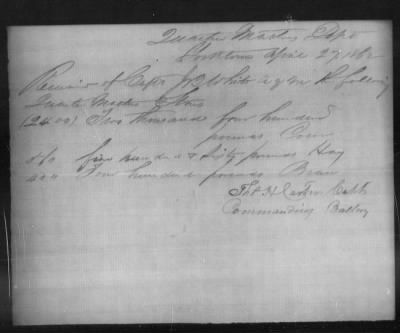 Quarter Masters Depo
Yorktown April 27 1862
Received of Capt J B White A Q M the following
Quarter Master Stores
(2400) Two thousand four hundred
pounds Corn
560 five hundred & sixty pounds Hay
400 Four hundred pounds Bran
Th H Carter Capt
Commanding Battery